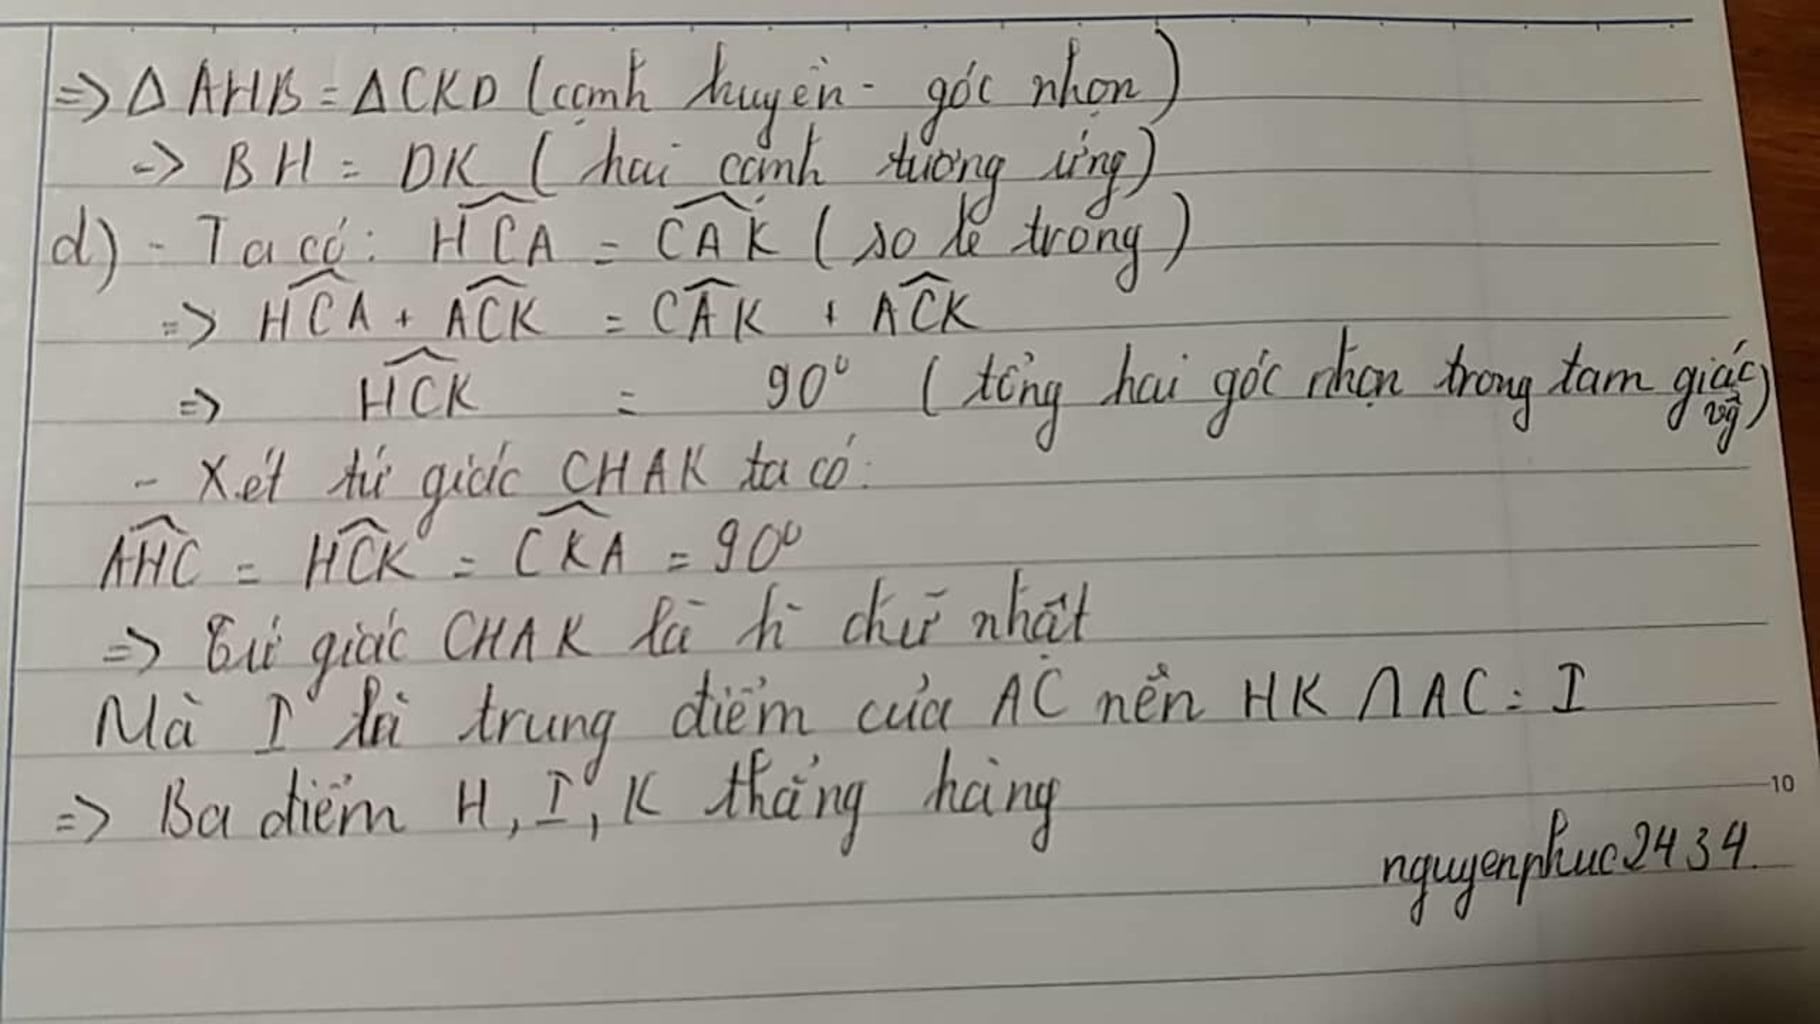 => Δ AHB = Δ CKD (cạnh huyền - góc nhọn)
=> BH = DK ( hai cạnh tương ứng)
d) - Ta có: \widehat{HCA} = \widehat{CAK} ( so le trong )
=> \widehat{HCA} + \widehat{ACK} = \widehat{CAK} + \widehat{ACK}
=> \widehat{HCK} = 90° ( tổng hai góc nhọn trong tam giác vg)
- Xét tứ giác CHAK ta có:
\widehat{AHC} = \widehat{HCK} = \widehat{CKA} = 90°
=> Tứ giác CHAK là h chữ nhật
Mà I là trung điểm của AC nên HK ∩ AC = I
=> Ba điểm H, I, K thẳng hàng
10
nguyenphuc2434.